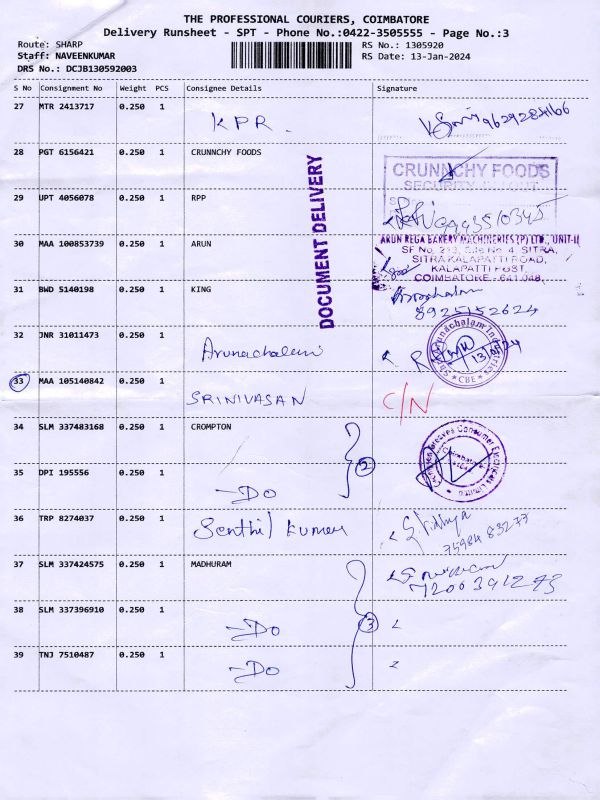 THE PROFESSIONAL COURIERS, COIMBATORE
Delivery Runsheet - SPT - Phone No.:0422-3505555 - Page No.:3
Route: SHARP
Staff: NAVEENKUMAR
DRS No.: DCJB130592003
RS No.: 1305920
RS Date: 13-Jan-2024
S No Consignment No Weight PCS Consignee Details Signature
27 MTR 2413717 0.250 1 KPR. 9629284166
28 PGT 6156421 0.250 1 CRUNNCHY FOODS
CRUNNCHY FOODS
SECURITY
DOCUMENT DELIVERY
29 UPT 4056078 0.250 1 RPP
30 MAA 100853739 0.250 1 ARUN
ARUN REGA BAKERY MACHINERIES (P) LTD., UNIT-II
SITRA,
SITRA KALAPATTI ROAD,
KALAPATTI POST,
COIMBATORE - 641 048.
31 BWD 5140198 0.250 1 KING
8925152624
32 JNR 31011473 0.250 1 Arunachalam
CBE
33 MAA 105140842 0.250 1 SRINIVASAN C/N
34 SLM 337483168 0.250 1 CROMPTON
2
35 DPI 195556 0.250 1 -DO
36 TRP 8274037 0.250 1 Senthil Kumar
75984 83277
37 SLM 337424575 0.250 1 MADHURAM
7200391273
38 SLM 337396910 0.250 1 -DO 3
39 TNJ 7510487 0.250 1 -DO